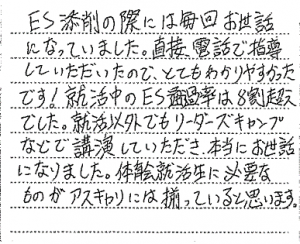 ES添削の際には毎回お世話
になっていました。直接、電話で指導
していただいたので、とてもわかりやすかった
です！就活中のES通過率は8割超え
でした。就活以外でもリーダーズキャンプ
などで講演していただき、本当にお世話
になりました。体育会就活生に必要な
ものがアスキャリには揃っていると思います。